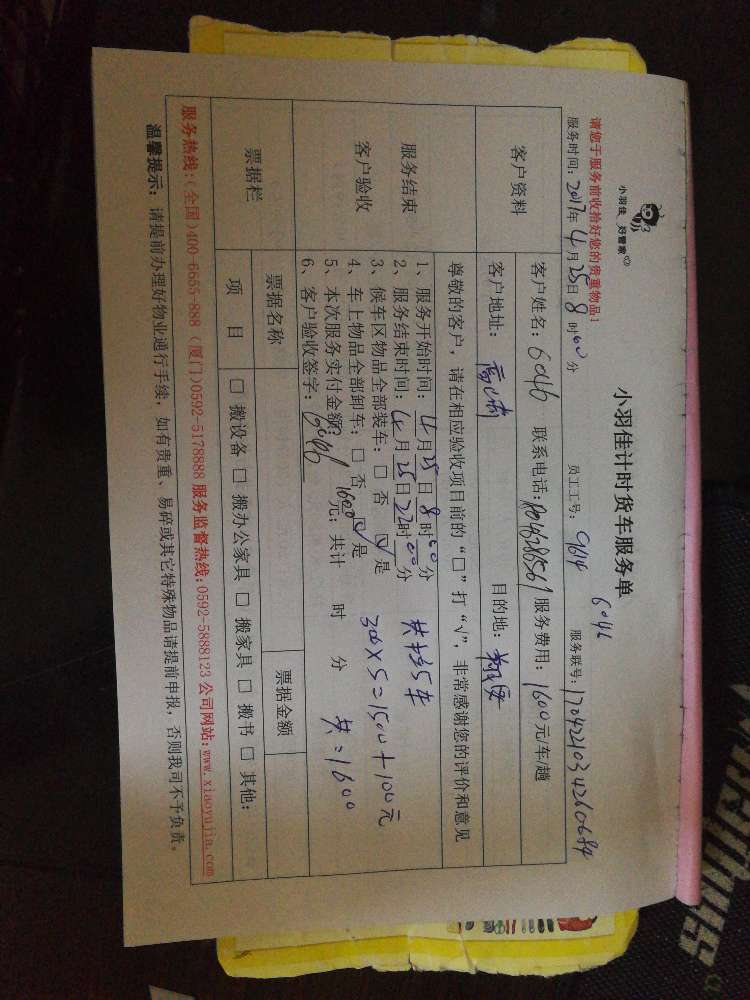 小羽佳 好管家
小羽佳计时货车服务单
6046
请您于服务前收拾好您的贵重物品！
员工工号： 9614
服务时间：2017年4月25日8时00分
服务联号：1704221034260684
客户资料
客户姓名：6046 联系电话： 服务费用：1600元/车/趟
客户地址： 目的地：
尊敬的客户，请在相应验收项目前的“□”打“√”，非常感谢您的评价和意见
服务结束
客户验收
1、服务开始时间：4月25日8时00分 共5车
2、服务结束时间：4月25日22时00分
3、候车区物品全部装车：□ 否 ☑是 300×5=1500+100元
4、车上物品全部卸车：□ 否 ☑是
5、本次服务实付金额：1600元；共计 时 分 共=1600
6、客户验收签字：6046
票据栏
票据名称 票据金额
项 目 □ 搬设备 □ 搬办公家具 □ 搬家具 □ 搬书 □ 其他：
服务热线：(全国)400-6655-888 (厦门)0592-5178888 服务监督热线：0592-5888123 公司网站：www.xiaoyujia.com
温馨提示：请提前办理好物业通行手续，如有贵重、易碎或其它特殊物品请提前申报，否则我司不予负责。